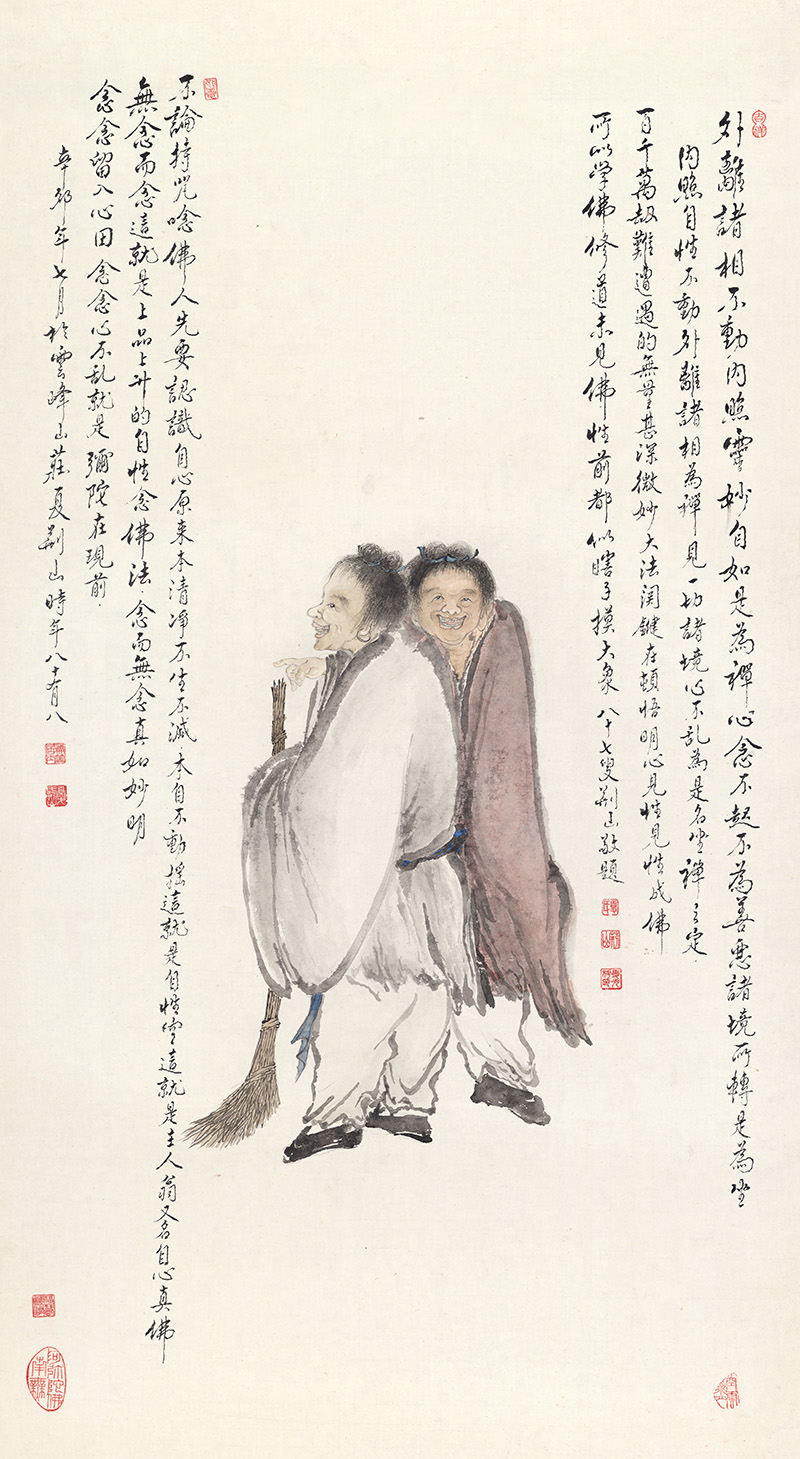 外離諸相不動內照靈妙自如是為禪心念不起不為善惡諸境所轉是為坐
內照自性不動外離諸相為禪見一切諸境心不乱為是名坐禪之定
百千萬劫難遭遇的無量甚深微妙大法関鍵在頓悟明心見性見性成佛
所以学佛修道未見佛性前都似瞎子摸大象 八十七叟荆山敬題
不論持咒唸佛人先要認識自心原来本清净不生不滅本自不動搖這就是自性空這就是主人翁又名自心真佛
無念而念這就是上品上升的自性念佛法念而無念真如妙明
念念留入心田念念心不乱就是彌陀在現前
辛卯年七月於雲峰山莊夏荆山時年八十有八
南無阿弥陀佛